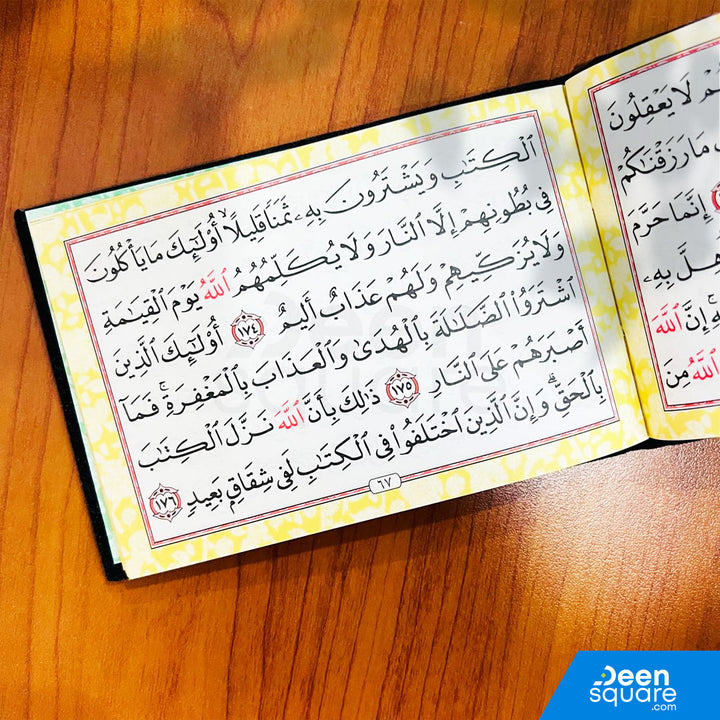 ثُمْ لَا يَعْقِلُونَ
مَا رَزَقْنَاكُمْ
إِنَّمَا حَرَّمَ
هِلَّ بِهِۦ
إِنَّ ٱللَّهَ
ٱللَّهُ مِنَ
ٱلْكِتَٰبِ وَيَشْتَرُونَ بِهِۦ ثَمَنًا قَلِيلًا ۙ أُو۟لَٰٓئِكَ مَا يَأْكُلُونَ
فِى بُطُونِهِمْ إِلَّا ٱلنَّارَ وَلَا يُكَلِّمُهُمُ ٱللَّهُ يَوْمَ ٱلْقِيَٰمَةِ
وَلَا يُزَكِّيهِمْ وَلَهُمْ عَذَابٌ أَلِيمٌ ١٧٤ أُو۟لَٰٓئِكَ ٱلَّذِينَ
ٱشْتَرَوُا۟ ٱلضَّلَٰلَةَ بِٱلْهُدَىٰ وَٱلْعَذَابَ بِٱلْمَغْفِرَةِ ۚ فَمَآ
أَصْبَرَهُمْ عَلَى ٱلنَّارِ ١٧٥ ذَٰلِكَ بِأَنَّ ٱللَّهَ نَزَّلَ ٱلْكِتَٰبَ
بِٱلْحَقِّ ۗ وَإِنَّ ٱلَّذِينَ ٱخْتَلَفُوا۟ فِى ٱلْكِتَٰبِ لَفِى شِقَاقٍۭ بَعِيدٍ ١٧٦
٦٧
Deen
square
.com
Deen
square